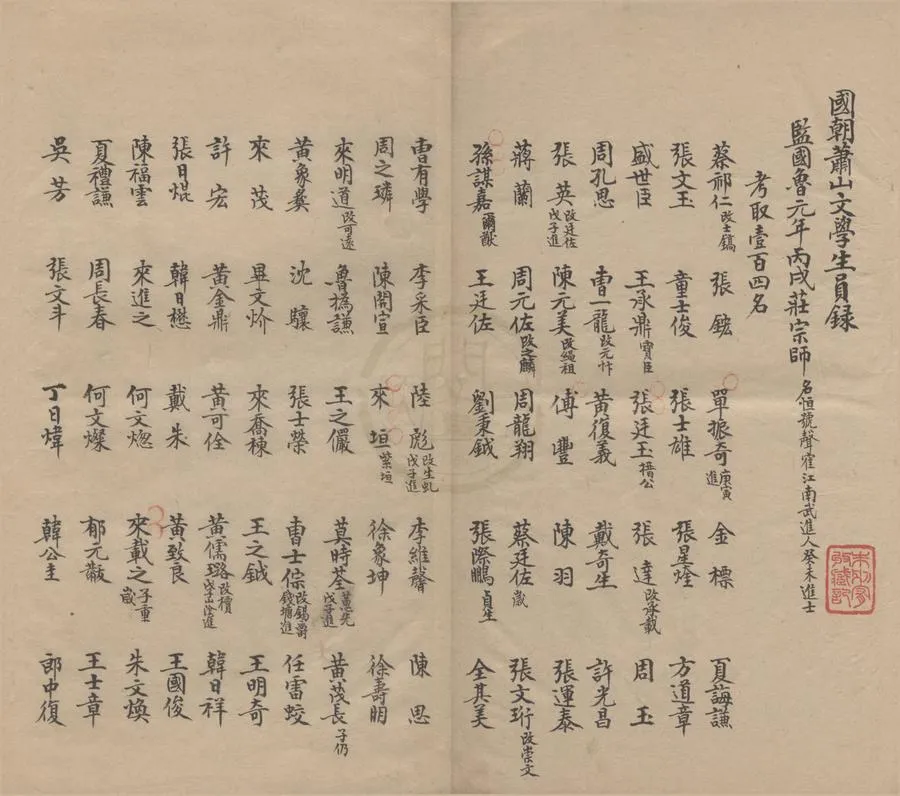 國朝蕭山文學生員錄
監國魯元年丙戌莊宗師 名恒號聲寉江南武進人癸未進士
考取壹百四名
蔡祁仁 改士鎬 張鋐 單振奇 庚寅進 金標 夏誨謙
張文玉 童士俊 張士雄 張星煃 方道章
盛世臣 王承鼎 寶臣 張廷玉 搢公 張達 改承載 周玉
周孔思 曹一龍 改元忭 黃復義 戴奇生 許光昌
張英 改廷佐 戊子進 陳元美 改繩祖 傅豐 陳羽 張運泰
蔣蘭 周元佐 改之麟 周龍翔 蔡廷佐 嵗 張文珩 改崇文
孫謀嘉 爾猷 王廷佐 劉秉鉞 張際鵬 貞生 全其美
曹有學 李采臣 陸彪 改生虬 戊子進 李維馨 陳思
周之璘 陳開宣 來垣 紫垣 徐象坤 徐壽明
來明道 改可遠 魯撝謙 王之儼 莫時荃 蕙先 戊子進 黃茂長 子仍
黃象彝 沈驤 張士榮 曹士倧 改錫爵 錢塘進 任雷蛟
來茂 畢文炌 來喬棟 王之鉞 王明奇
許宏 黃金鼎 黃可佺 黃儒璐 改櫝 韓日祥
張日焜 韓日懋 戴朱 黃致良 王國俊
陳福雲 來進之 何文煾 來載之 子重 嵗 朱文煥
夏禮謙 周長春 何文燦 郁元黻 王士章
吳芳 張文斗 丁日煒 韓公圭 郎中復